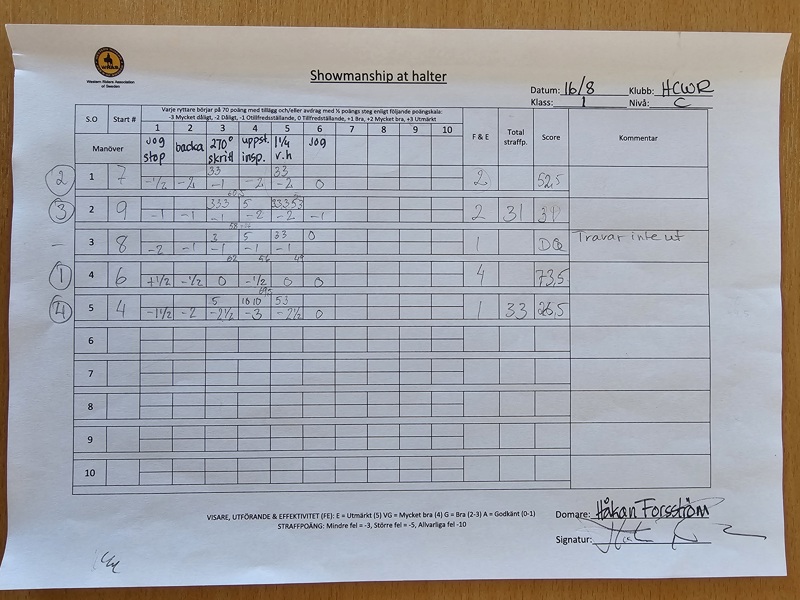 Western Riders Association
of Sweden
Showmanship at halter
Datum: 16/8 Klubb: HCWR
Klass: 1 Nivå: C
S.O Start # Varje ryttare börjar på 70 poäng med tillägg och/eller avdrag med ½ poängs steg enligt följande poängskala: F & E Total straffp. Score Kommentar
-3 Mycket dåligt, -2 Dåligt, -1 Otillfredsställande, 0 Tillfredsställande, +1 Bra, +2 Mycket bra, +3 Utmärkt
1 2 3 4 5 6 7 8 9 10
Manöver jog stop backa 270° skritt uppst. insp. 1 1/4 v.h jog
33 33
2 1 7 -1/2 -2 -1 -2 -2 0 2 52,5
333 5 33353
3 2 9 -1 -1 -1 -2 -2 -1 2 31
3 5 33 0
- 3 8 -2 -1 -1 -1 -1 1 DQ Travar inte ut
1 4 6 +1/2 -1/2 0 -1/2 0 0 4 73,5
5 10 10 53
4 5 4 -1 1/2 -2 -2 1/2 -3 -2 1/2 0 1 33 26,5
6
7
8
9
10
VISARE, UTFÖRANDE & EFFEKTIVITET (FE): E = Utmärkt (5) VG = Mycket bra (4) G = Bra (2-3) A = Godkänt (0-1)
STRAFFPOÄNG: Mindre fel = -3, Större fel = -5, Allvarliga fel -10
Domare: Håkan Forsström
Signatur: